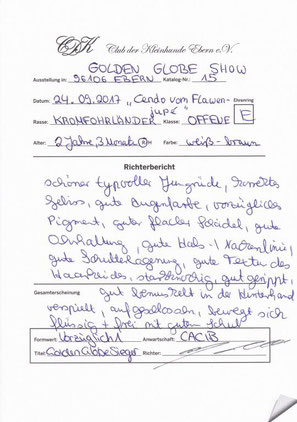 CdK Club der Kleinhunde Ebern e.V.
GOLDEN GLOBE SHOW
Ausstellung in: 96106 EBERN Katalog-Nr.: 15
Datum: 24.09.2017 "Cendo vom Flawen-
jupe" Ehrenring
Rasse: KROMFOHRLÄNDER Klasse: OFFENE E
Alter: 2 Jahre, 3 Monate R H Farbe: weiß-braun
Richterbericht
schöner typvoller Jungrüde, korrektes
Gebiss, gute Augenfarbe, vorzügliches
Pigment, guter flacher Schädel, gute
Ohrhaltung, gute Hals-/Nackenlinie,
gute Schulterlagerung, gute Textur des
Haarkleides, gut gerippt,
Gesamterscheinung gut bemuskelt in der Hinterhand
verspielt, aufgeschlossen, bewegt sich
flüssig + frei mit gutem Schub
Formwert: Vorzüglich 1 Anwartschaft: CACIB
Titel: Golden Globe Sieger Richter: